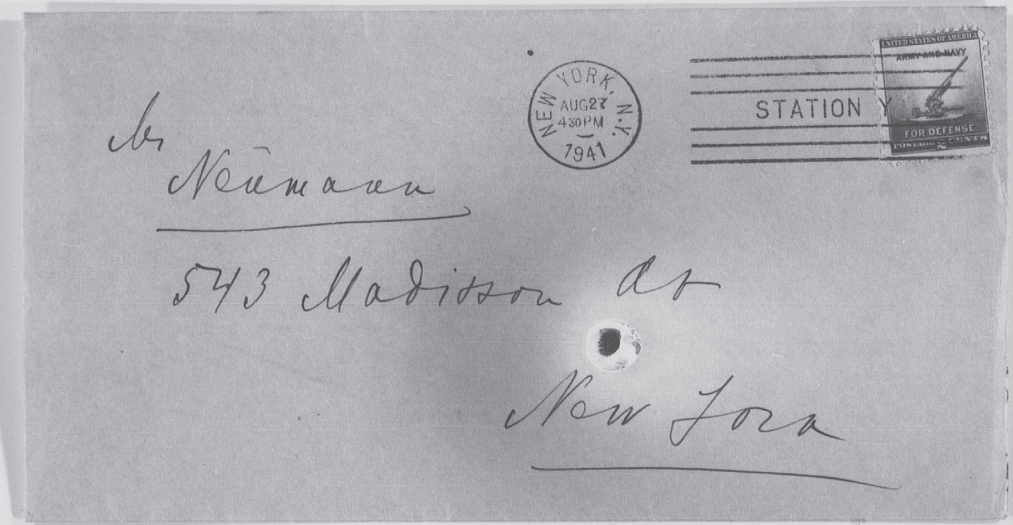 NEW YORK, N.Y.
AUG 27
4 30 PM
1941
STATION Y
UNITED STATES OF AMERICA
ARMY AND NAVY
FOR DEFENSE
POSTAGE 2 CENTS
Mr
Neŭmann
543 Madisson
New York